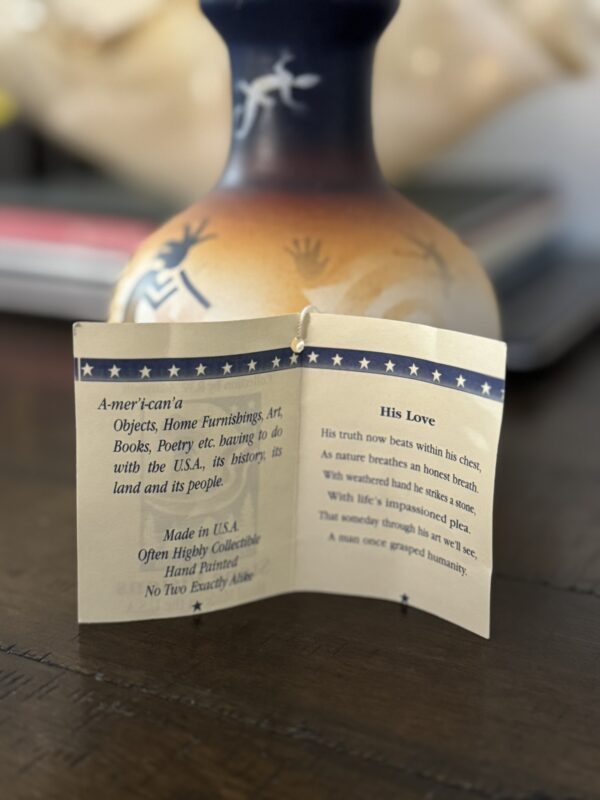 A-mer'i-can'a
Objects, Home Furnishings, Art,
Books, Poetry etc. having to do
with the U.S.A., its history, its
land and its people.
Made in U.S.A.
Often Highly Collectible
Hand Painted
No Two Exactly Alike
His Love
His truth now beats within his chest,
As nature breathes an honest breath.
With weathered hand he strikes a stone,
With life's impassioned plea.
That someday through his art we'll see,
A man once grasped humanity.